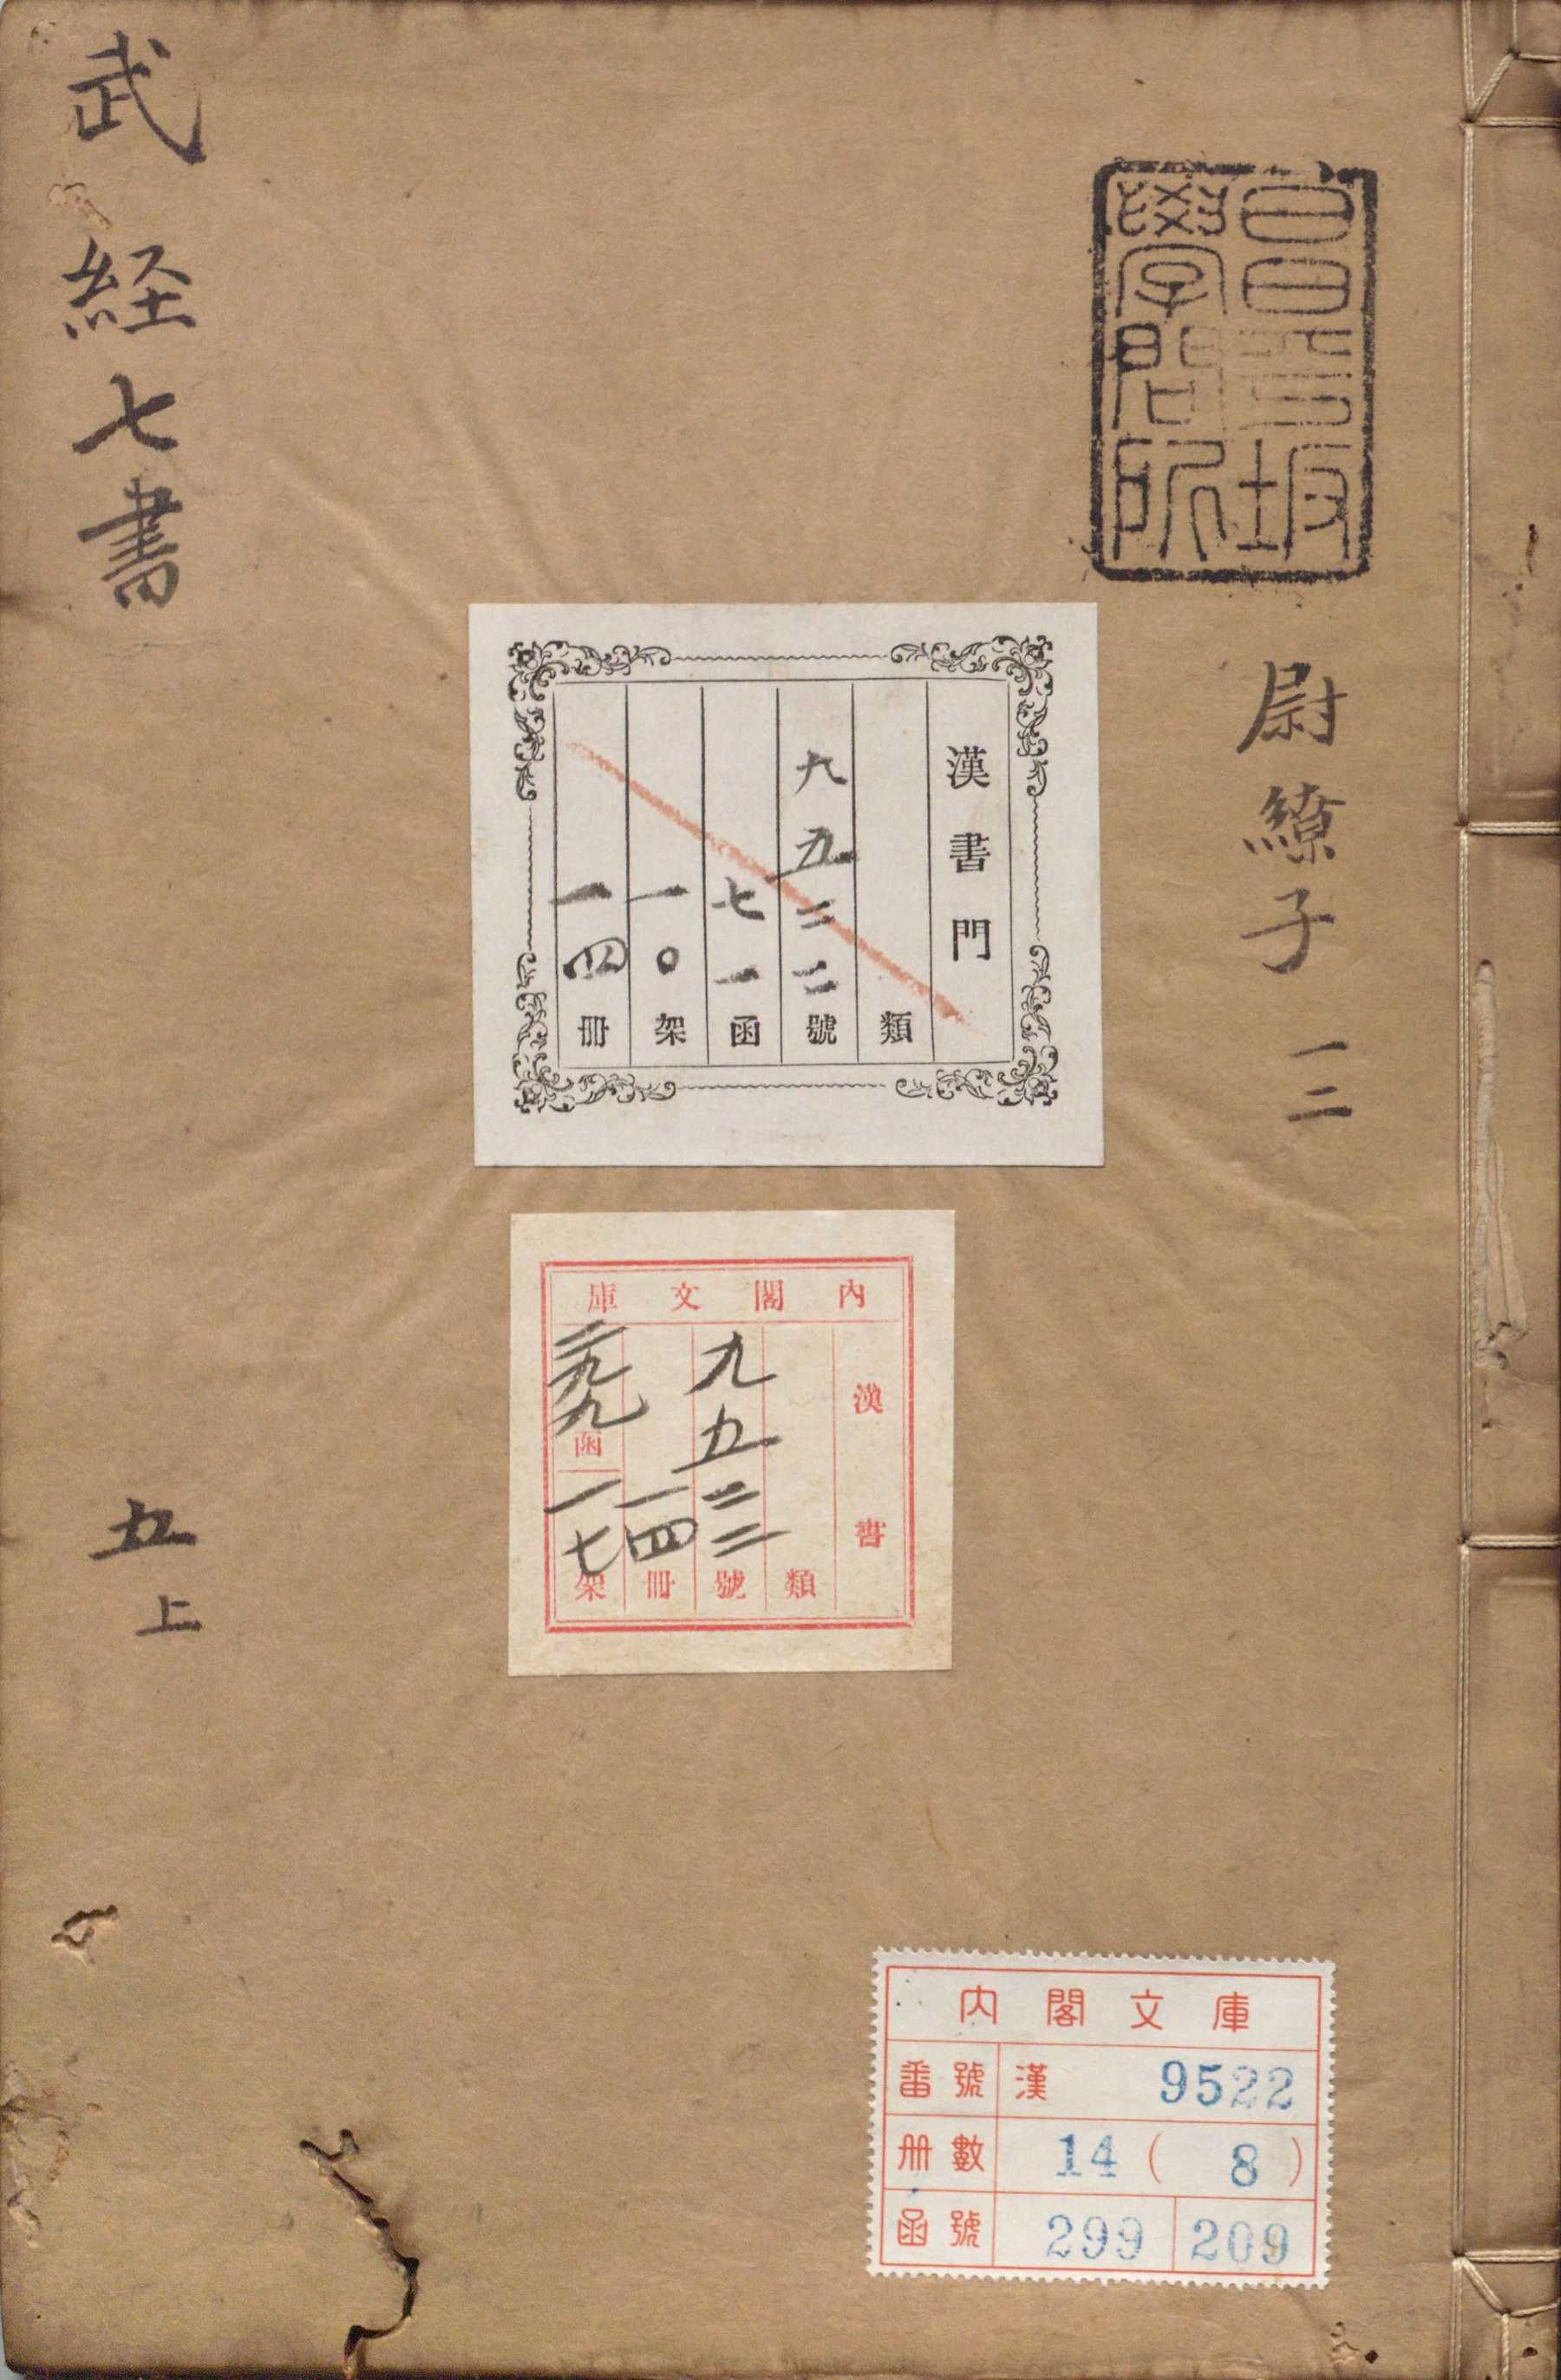 昌平坂
學問所
尉繚子 一二
武経七書
五上
漢書門
類
九五二二號
七一函
一〇架
一四冊
內閣文庫
漢書
類
九五二二號
一四冊
二九九函
一七架
內閣文庫
番號 漢 9522
册數 14 ( 8 )
函號 299 209